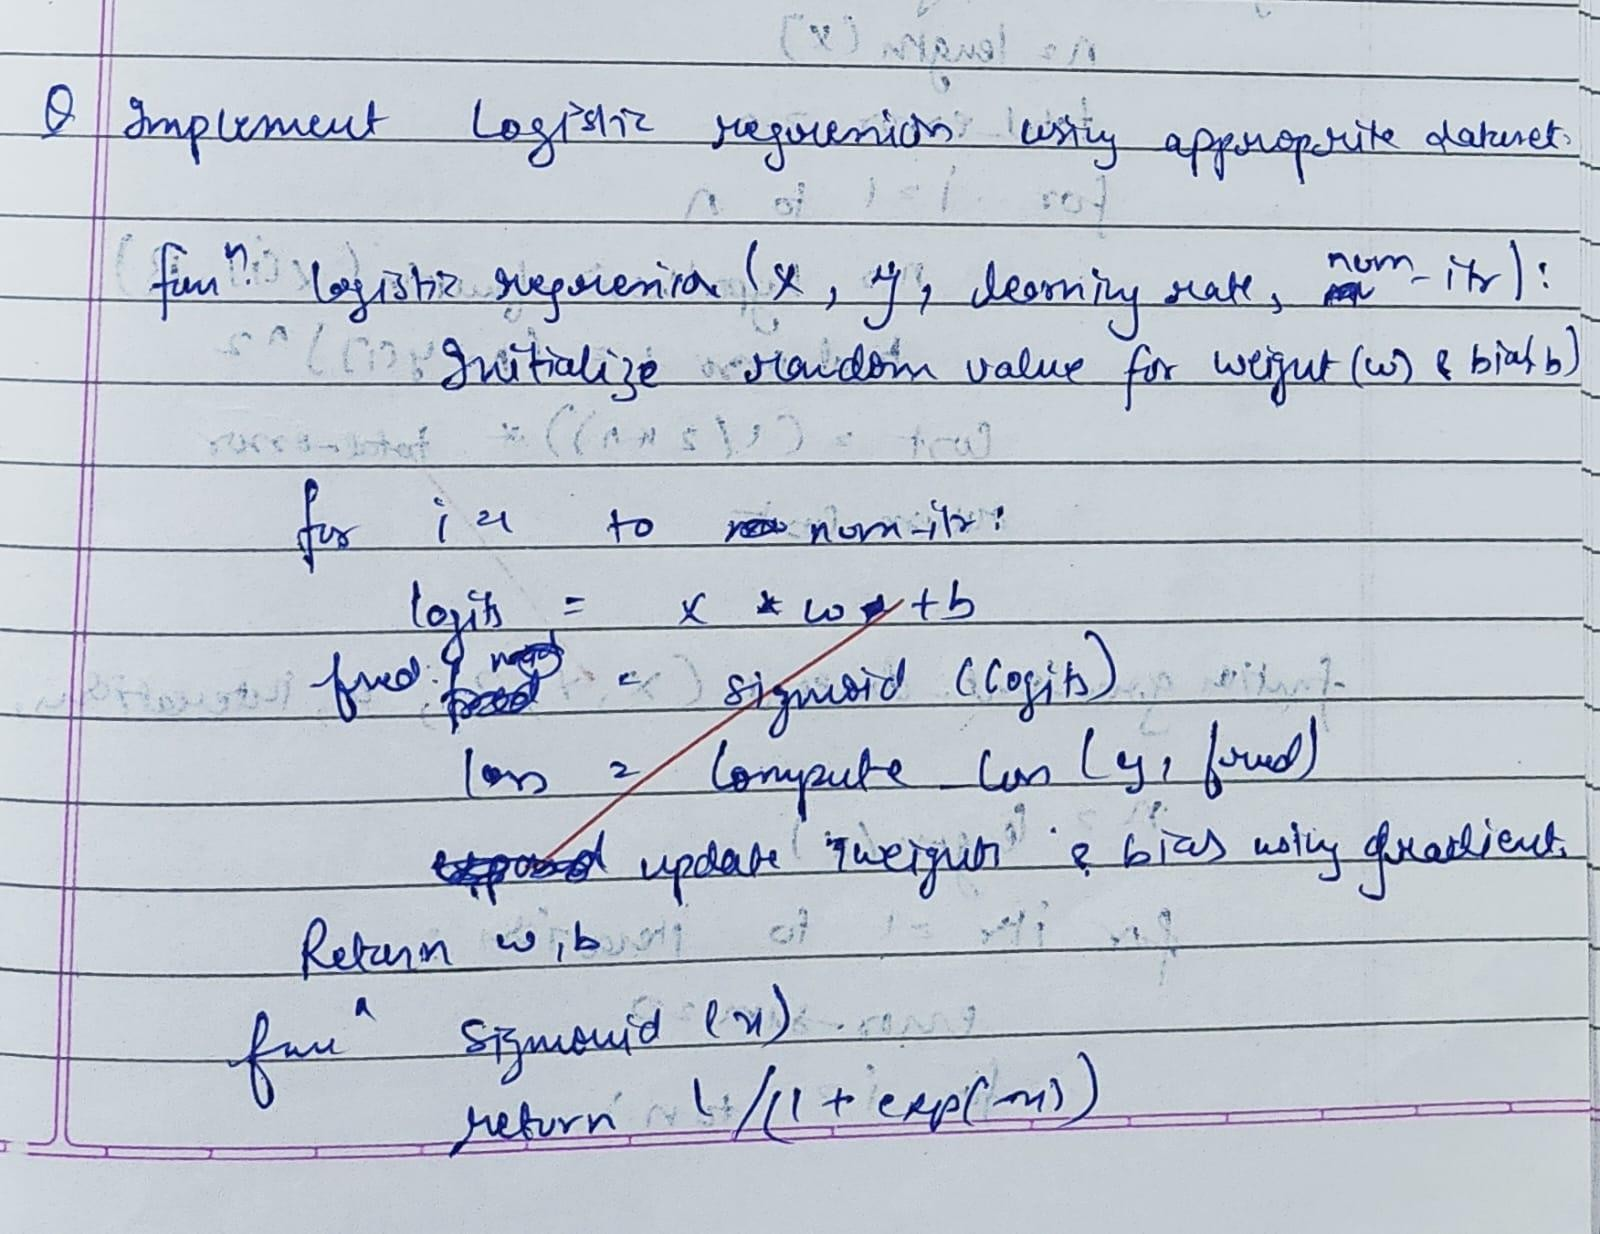 Q Implement Logistic regression using approprite dataset.
funⁿ. logistic regression (x, y, learning rate, num-itr):
Initialize random value for weight (w) & bias b)
for i = 1 to num-itr:
logits = x * w + b
pred. = sigmoid (logits)
loss = Compute loss (y, pred)
update weights & bias using gradient.
Return w, b
funⁿ Sigmouid (x)
return 1/(1 + exp(-x))